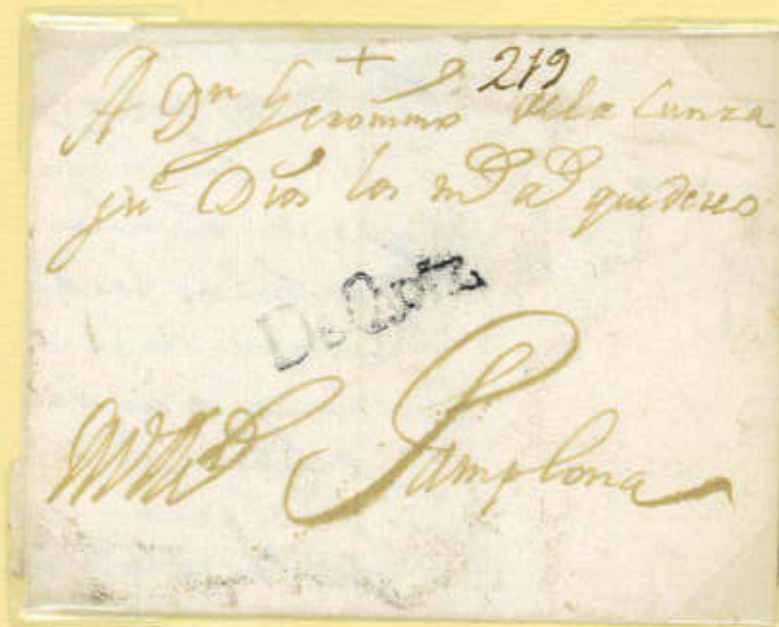 + 219
A Dn Geronimo de la Cunza
Dios los md ad que deseo
De Cadiz
Pamplona